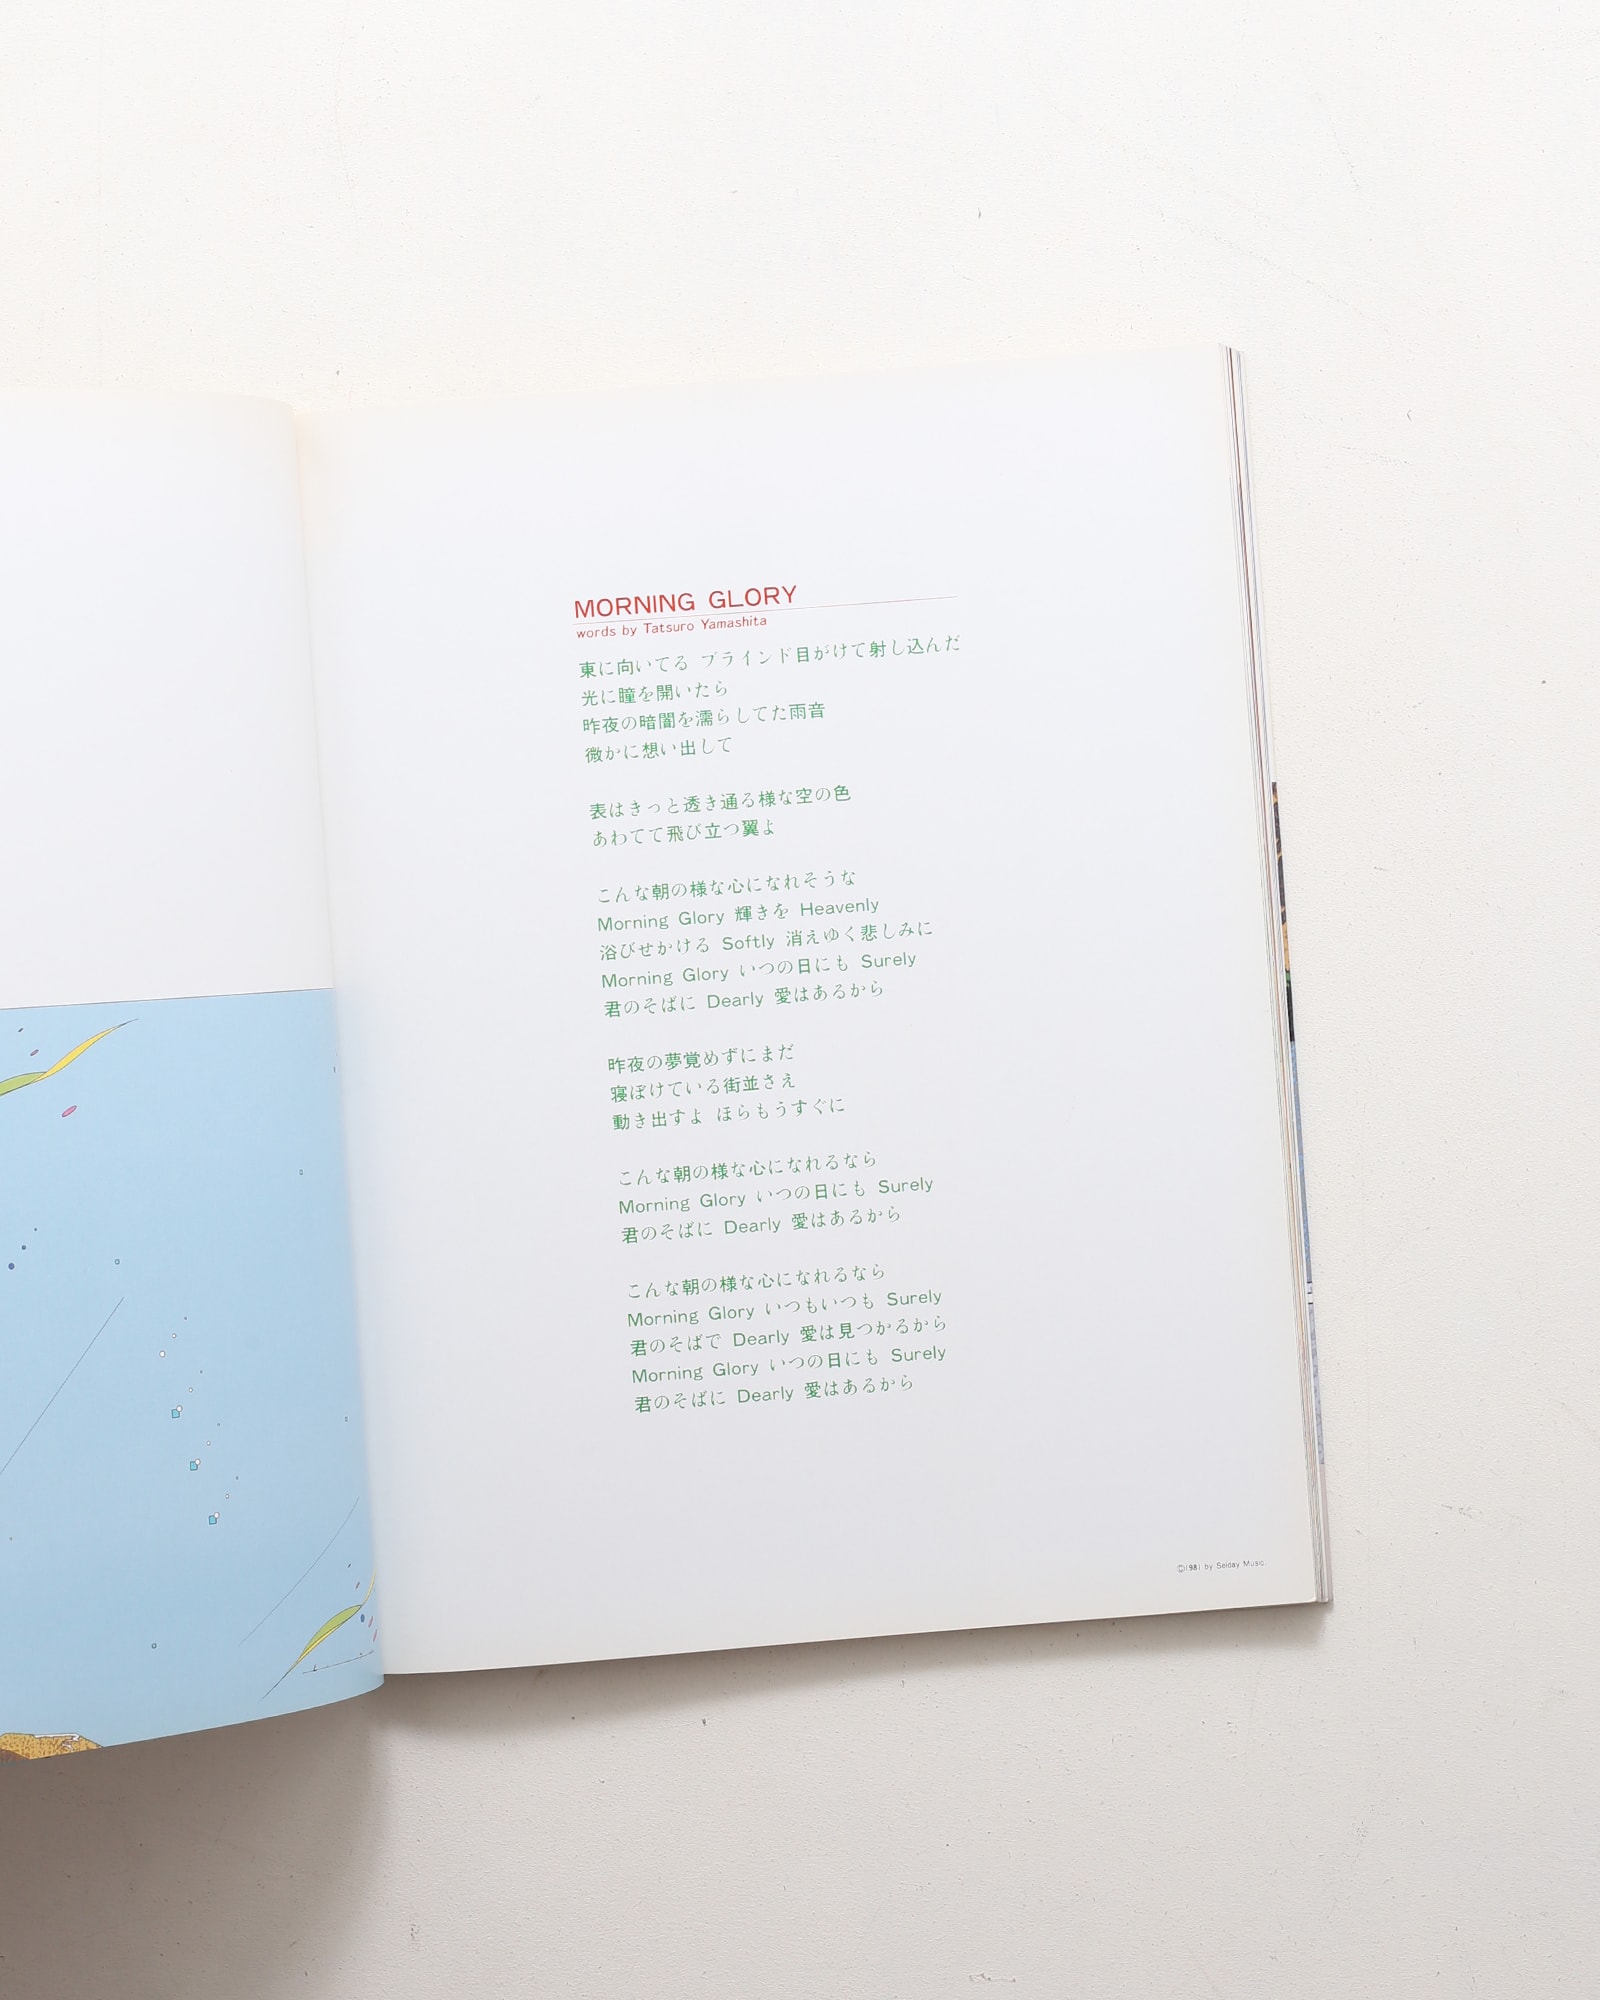 MORNING GLORY
words by Tatsuro Yamashita
東に向いてる ブラインド目がけて射し込んだ
光に瞳を開いたら
昨夜の暗闇を濡らしてた雨音
微かに想い出して
表はきっと透き通る様な空の色
あわてて飛び立つ翼よ
こんな朝の様な心になれそうな
Morning Glory 輝きを Heavenly
浴びせかける Softly 消えゆく悲しみに
Morning Glory いつの日にも Surely
君のそばに Dearly 愛はあるから
昨夜の夢覚めずにまだ
寝ぼけている街並さえ
動き出すよ ほらもうすぐに
こんな朝の様な心になれるなら
Morning Glory いつの日にも Surely
君のそばに Dearly 愛はあるから
こんな朝の様な心になれるなら
Morning Glory いつもいつも Surely
君のそばで Dearly 愛は見つかるから
Morning Glory いつの日にも Surely
君のそばに Dearly 愛はあるから
©1981 by Seiday Music.